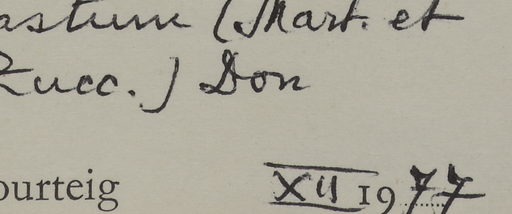 astrum (Mart. et
Zucc.) Don
ourteig
XII 1977